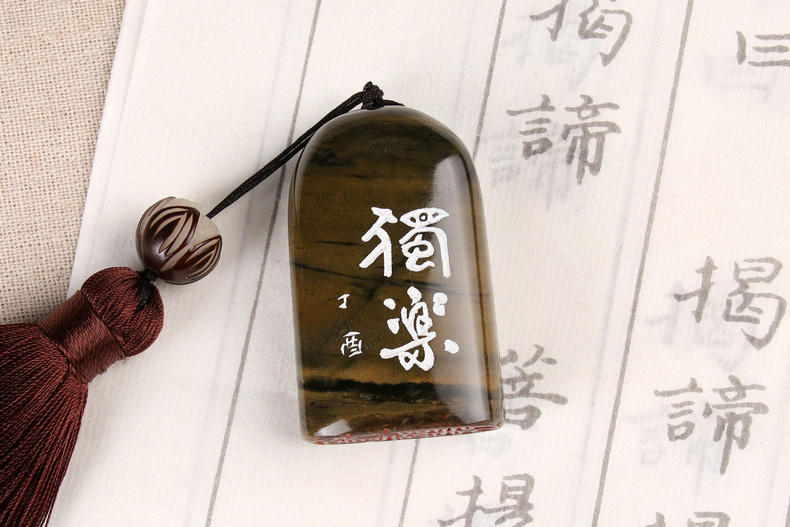 獨樂
丁酉
三
揭
諦
揭
諦
菩
揭